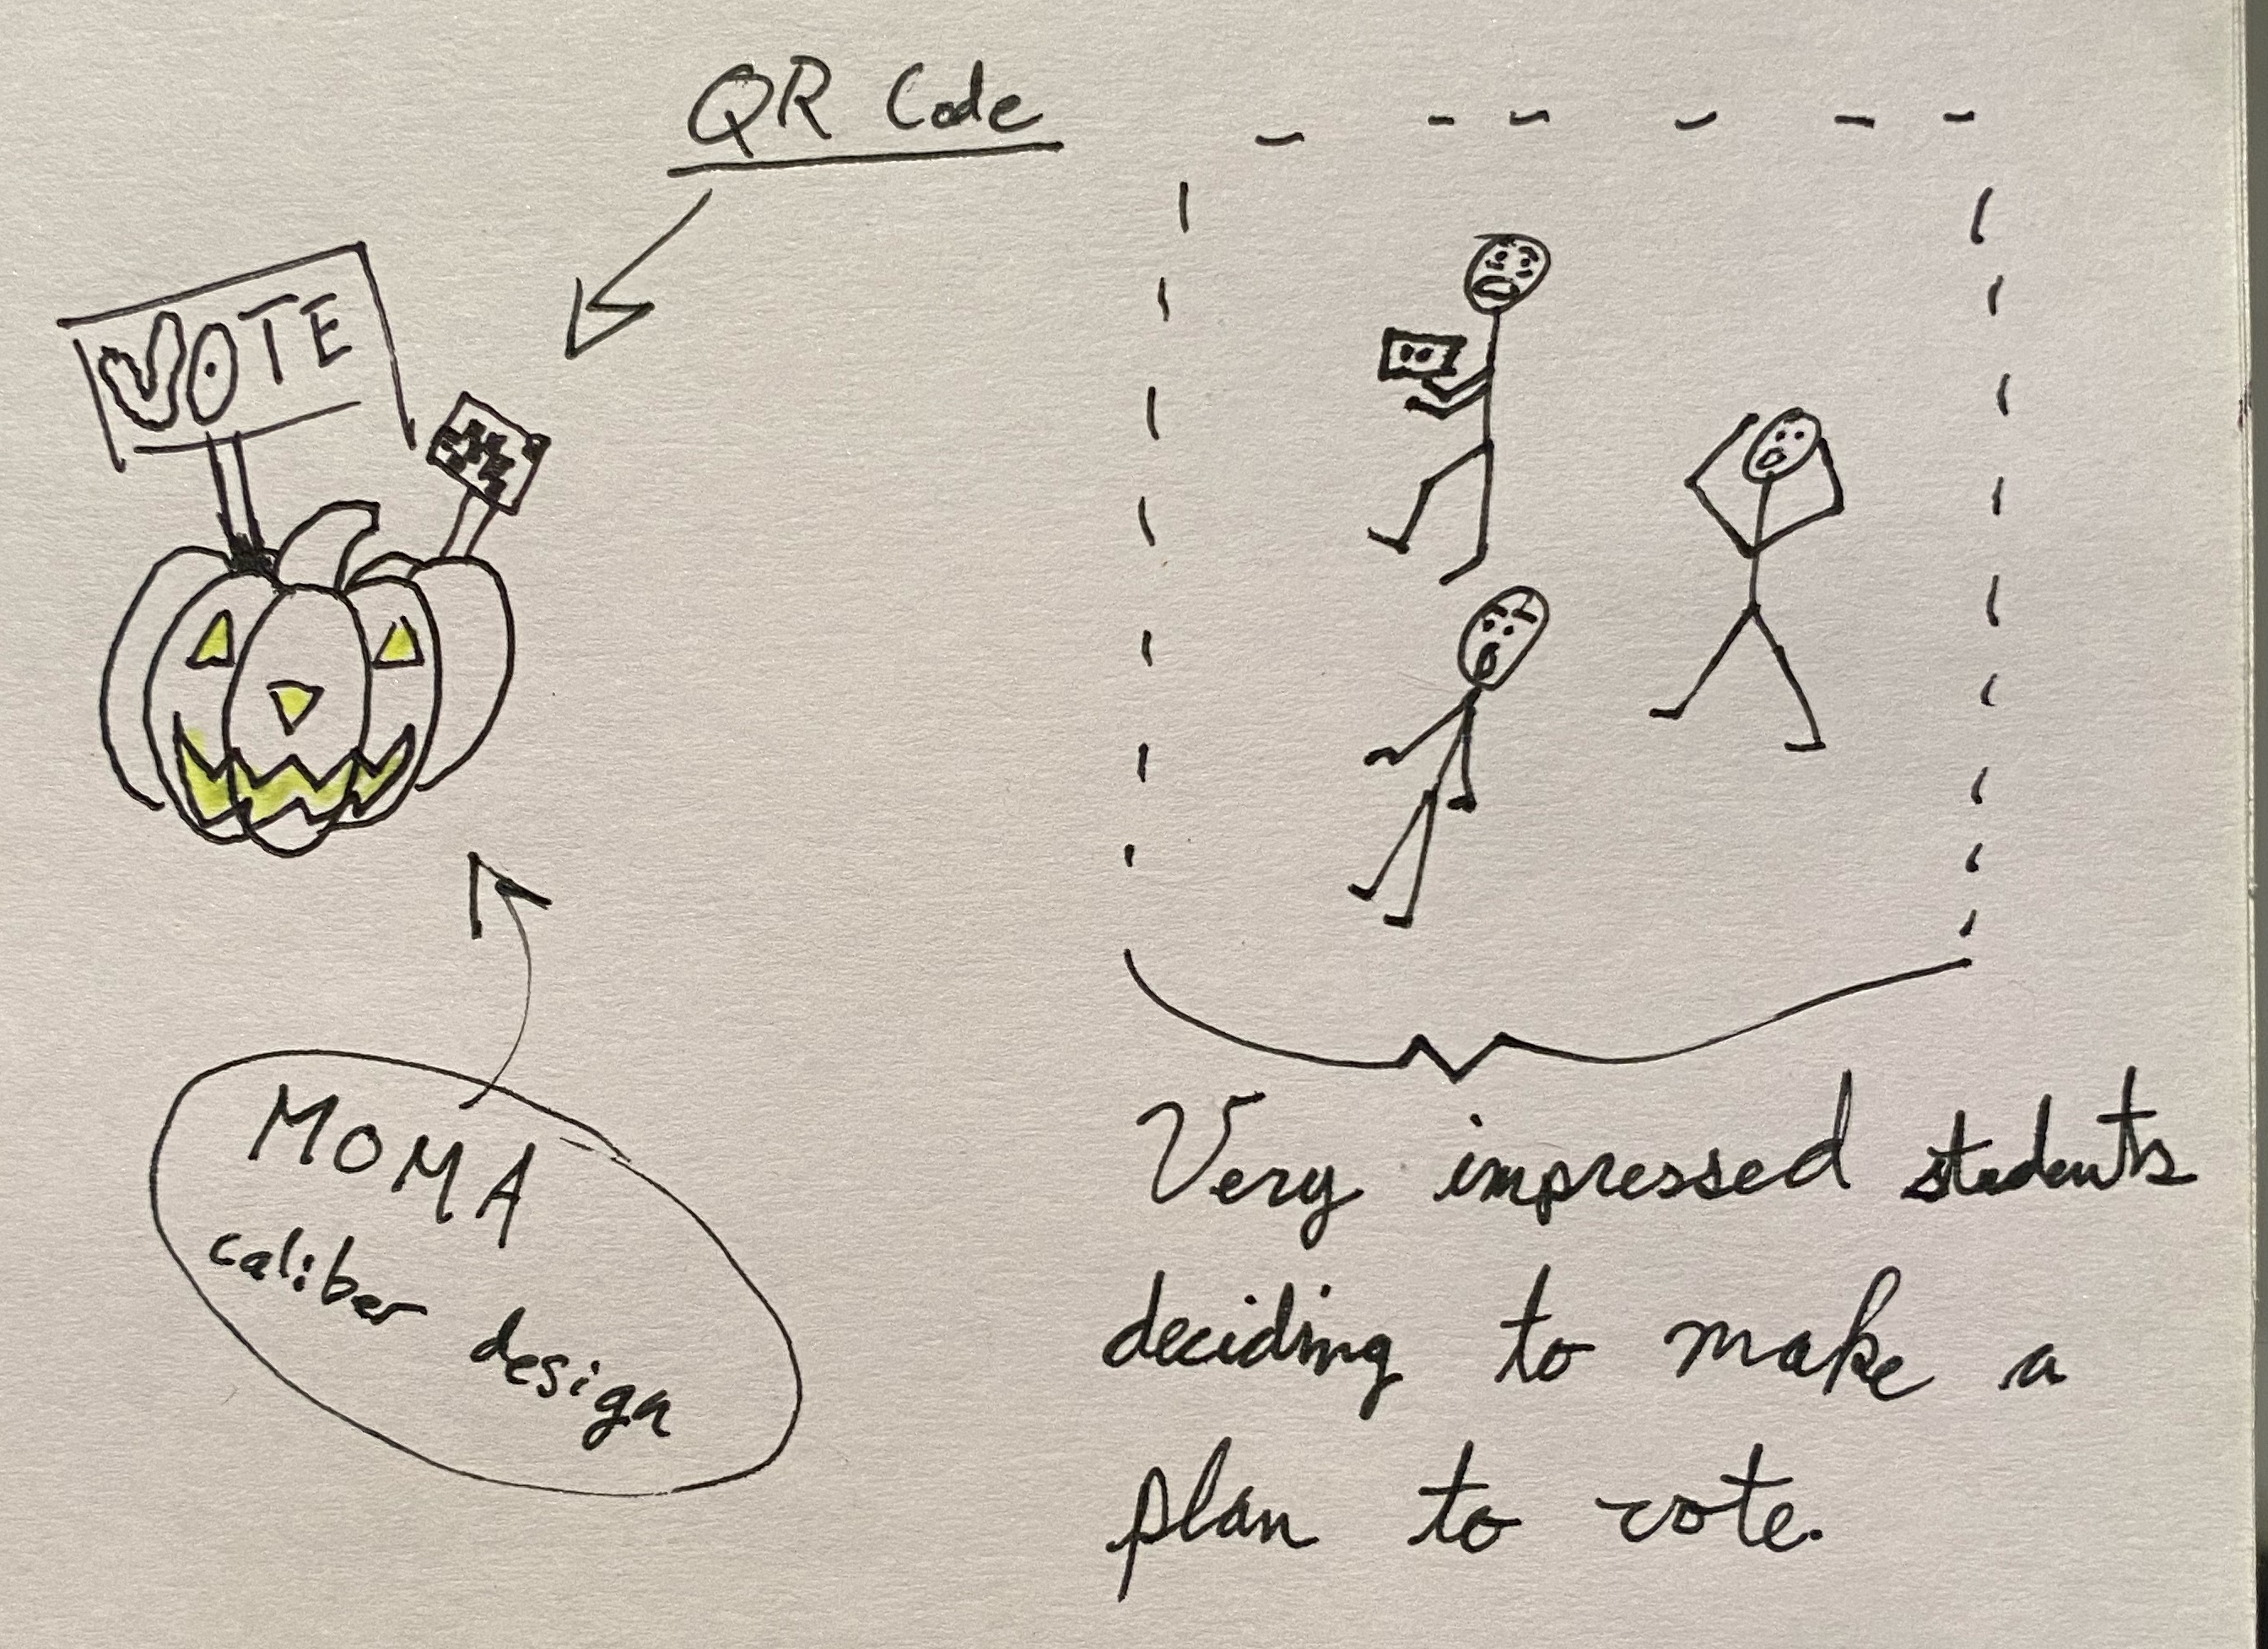 QR Code
VOTE
MOMA
caliber design
Very impressed students
deciding to make a
plan to vote.